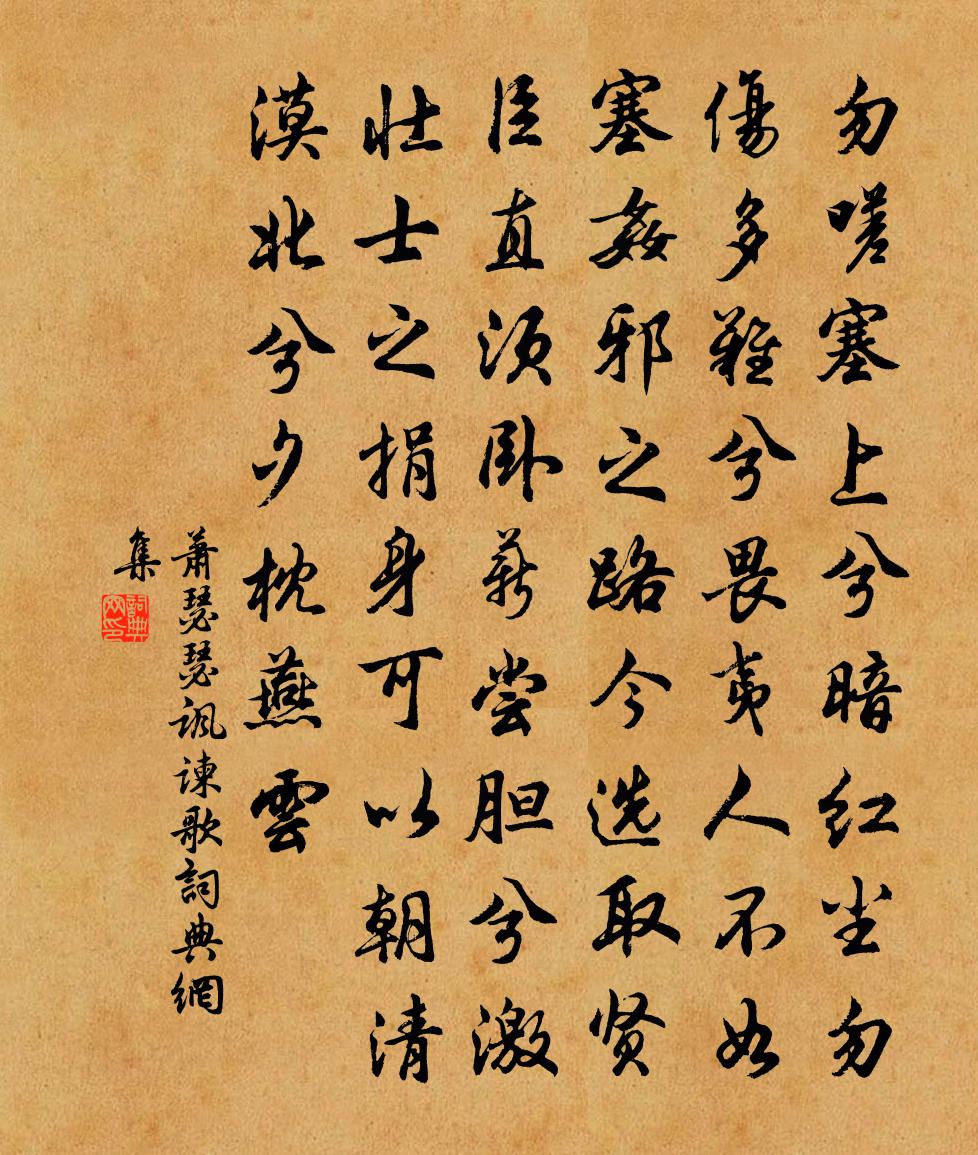 勿嗟塞上兮暗红尘勿
傷多難兮畏夷人不如
塞姦邪之路今选取贤
臣直须卧薪尝胆兮激
壮士之捐身可以朝清
漠北兮夕枕燕雲
蕭瑟瑟諷諫歌詞典網
集
詞典网印